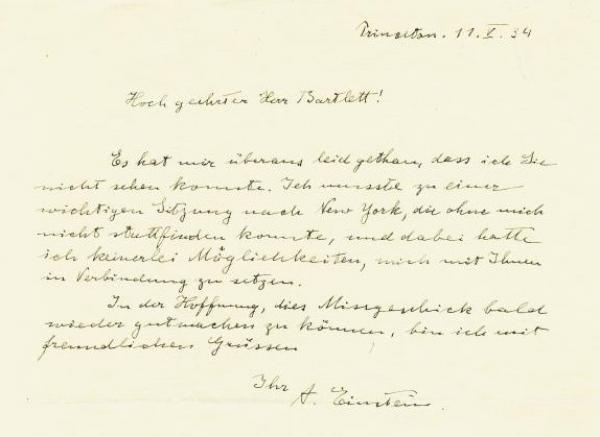 Princeton. 11.V.34
Hochgeehrter Herr Bartlett!
Es hat mir überaus leid gethan, dass ich Sie
nicht sehen konnte. Ich musste zu einer
wichtigen Sitzung nach New York, die ohne mich
nicht stattfinden konnte, und dabei hatte
ich keinerlei Möglichkeiten, mich mit Ihnen
in Verbindung zu setzen.
In der Hoffnung, dies Missgeschick bald
wieder gutmachen zu können, bin ich mit
freundlichen Grüssen
Ihr
A. Einstein.